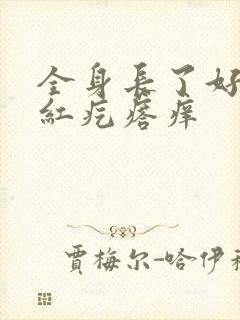 全身長了好
紅疙瘩痒
賈梅尔-哈伊